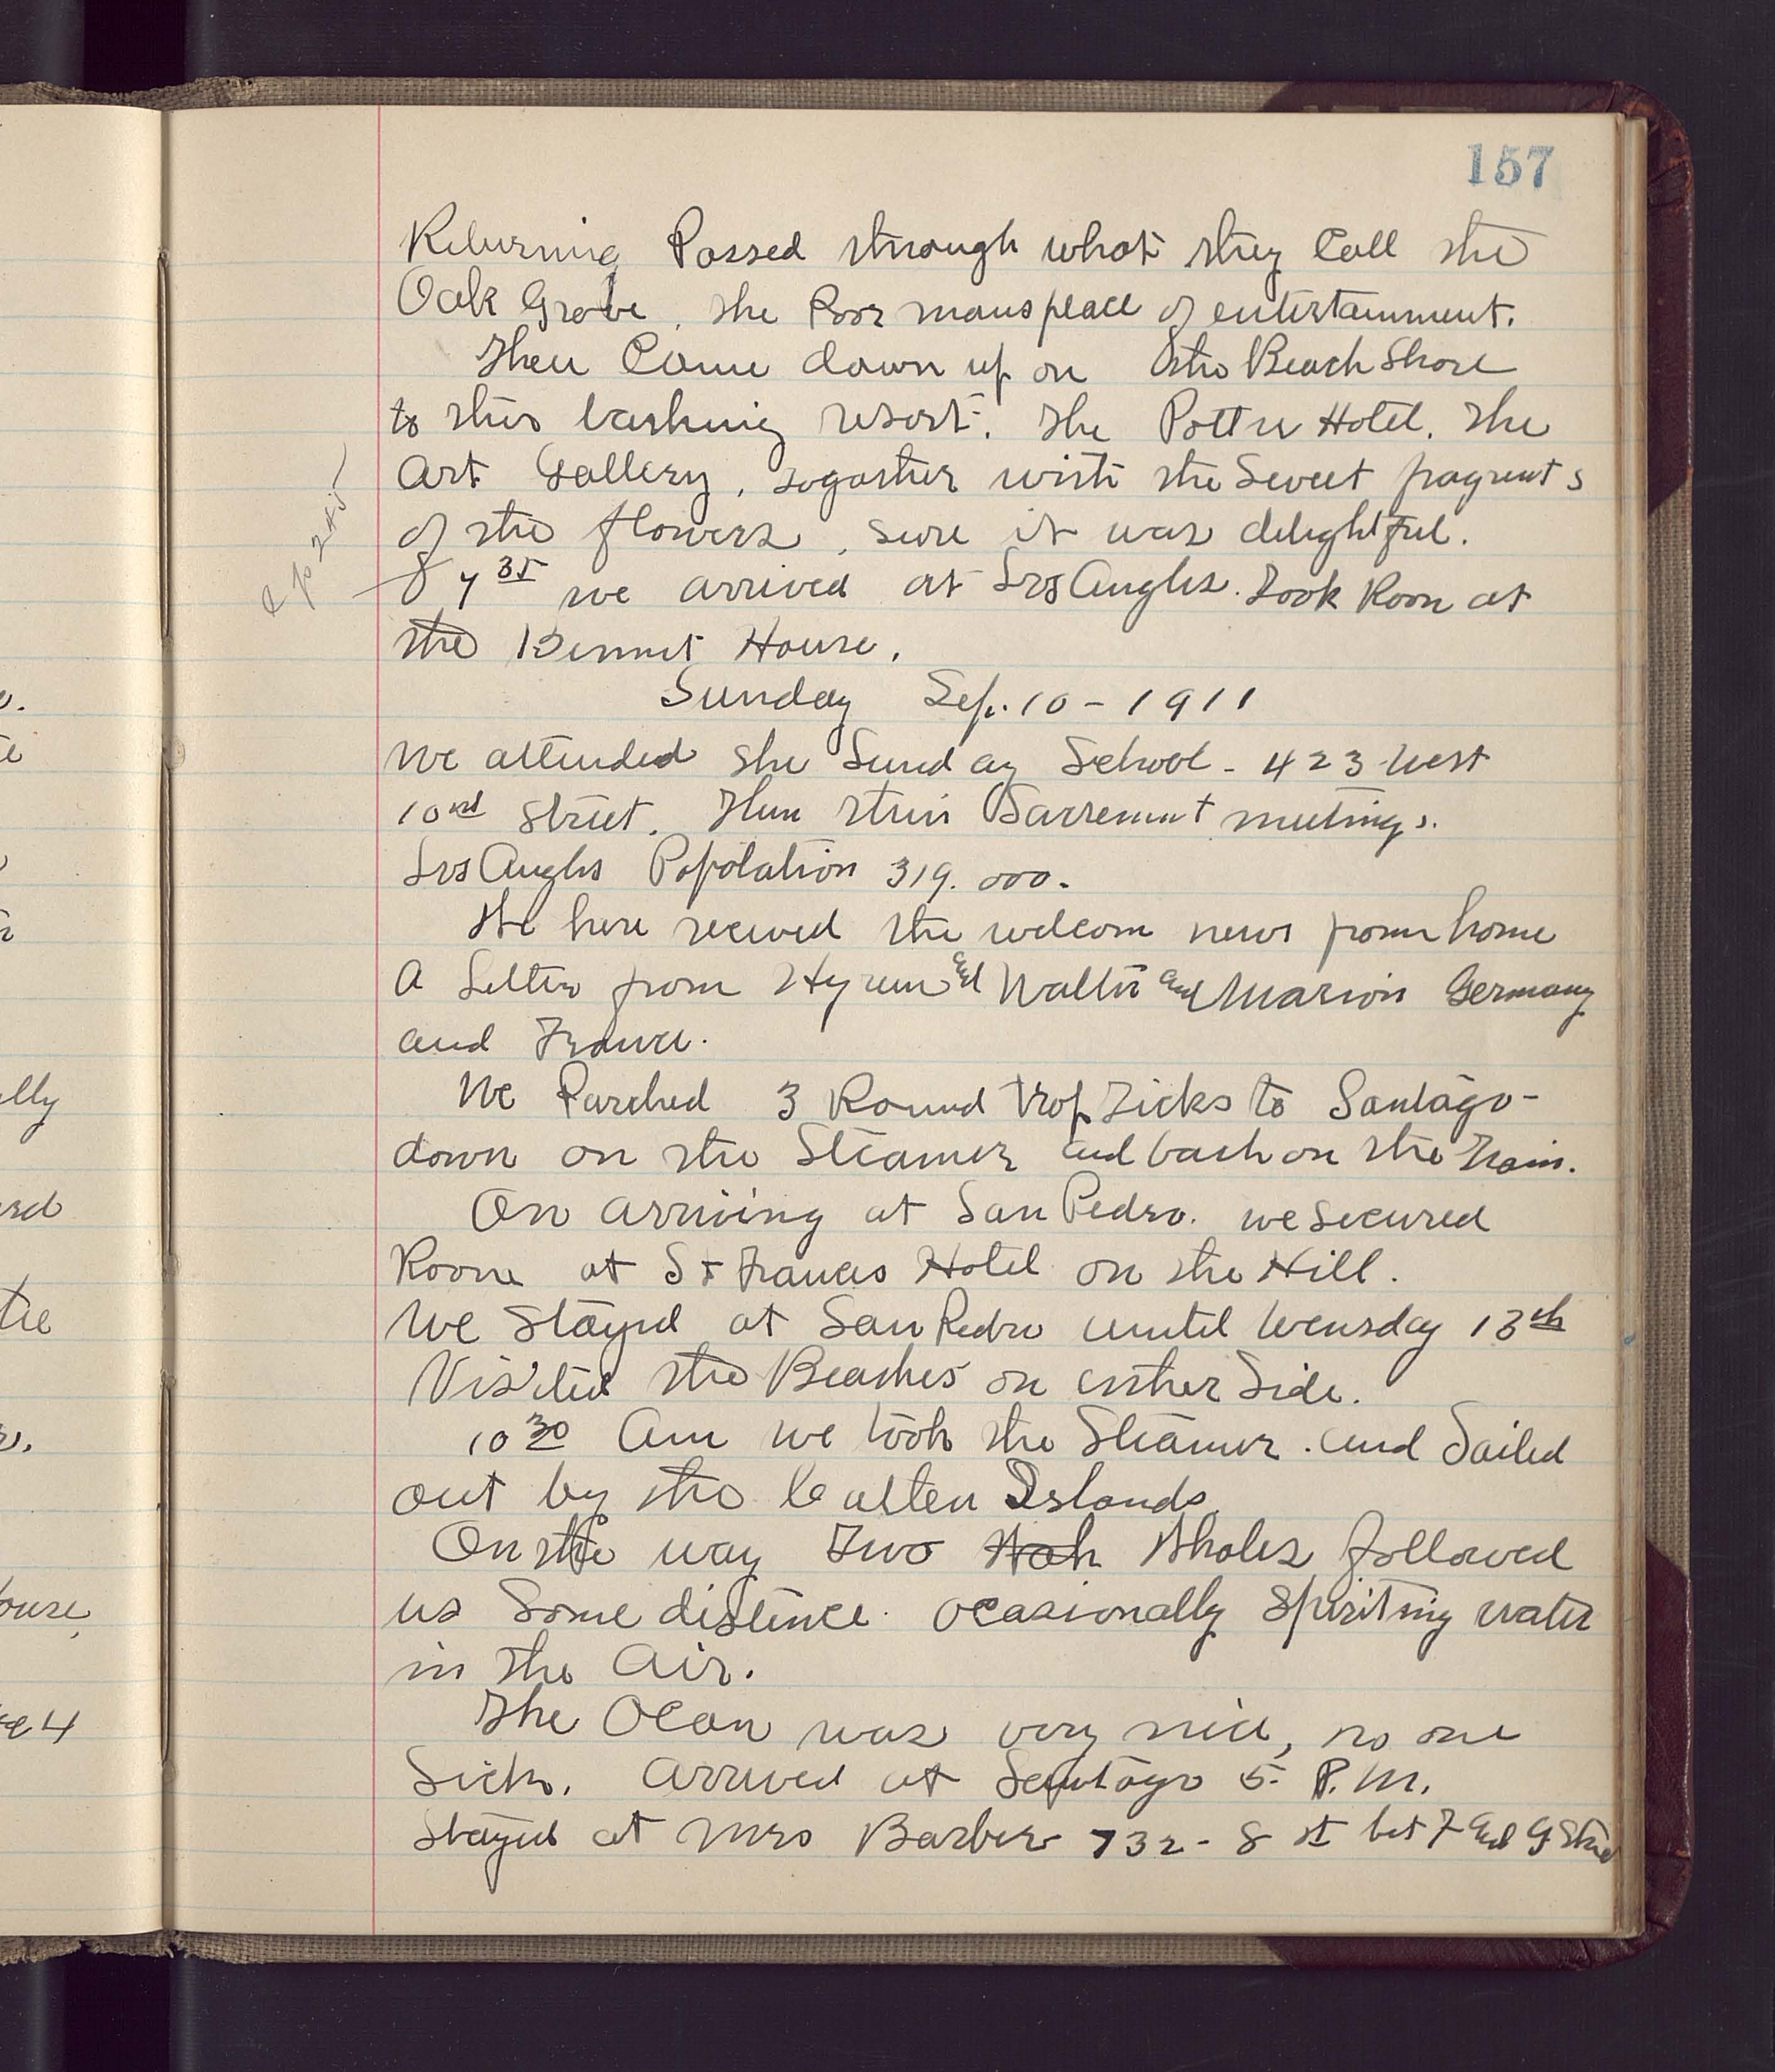 157
Returning Passed through what they Call the
Oak Grove, the Poor mans place of entertainment.
Then Came down up on the Beach Shore
to this bathing resort. The Potter Hotel. The
Art Gallery, togather with the Sweet fragrents
of the flowers, sure it was delightful.
7 35 we arrived at Los Angles. Took Room at
the Bennet House.
Sunday Sep. 10 - 1911
We attended the Sunday School - 423 West
10nd Street. Then their Sacrement meetings.
Los Angles Popolation 319.000.
We here recived the welcom news from home
A Letter from Hyrum and Walter and Marion Germany
and France.
We Parched 3 Round trop Ticks to Santago -
down on the Steamer and back on the Train.
On arriving at San Pedro. we secured
Room at St Frances Hotel on the Hill.
We Stayed at San Pedro until Wensday 13th
Visited the Beaches on either Side.
10 30 Am we took the Steamer. and Sailed
out by the Islands
On the way Two Wholes followed
us Some distence ocasionally Spiriting water
in the Air.
The Ocean was very nice, no one
Sick. Arrived at Santago 5- P.M.
Stayed at Mrs Barber 732 - 8 st bet F and G
lly
tee
ouse,
4